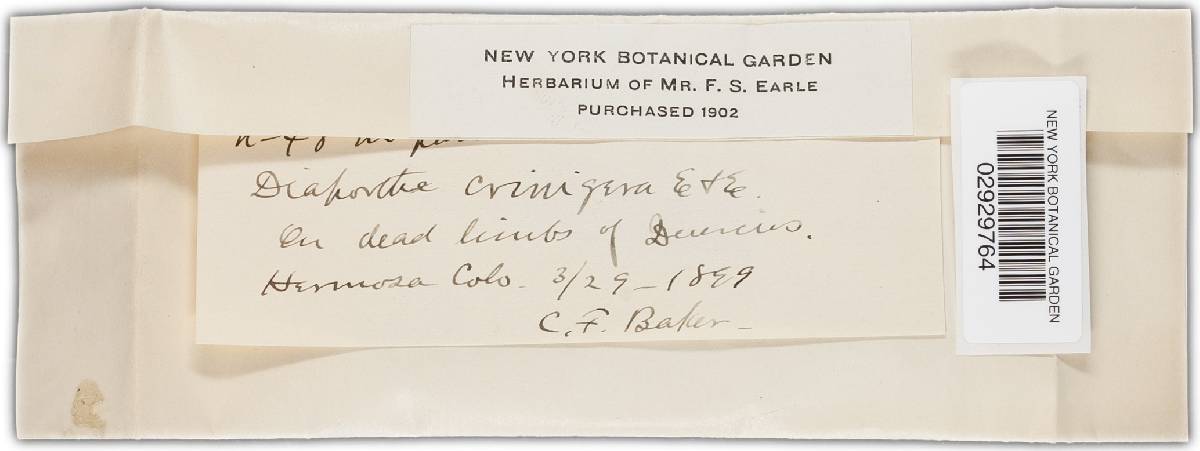 NEW YORK BOTANICAL GARDEN
HERBARIUM OF MR. F. S. EARLE
PURCHASED 1902
Diaporthe crinigera E & E.
On dead limbs of Quercus.
Hermosa Colo. 3/29-1899
C. F. Baker
NEW YORK BOTANICAL GARDEN
02929764
NEW YORK BOTANICAL GARDEN